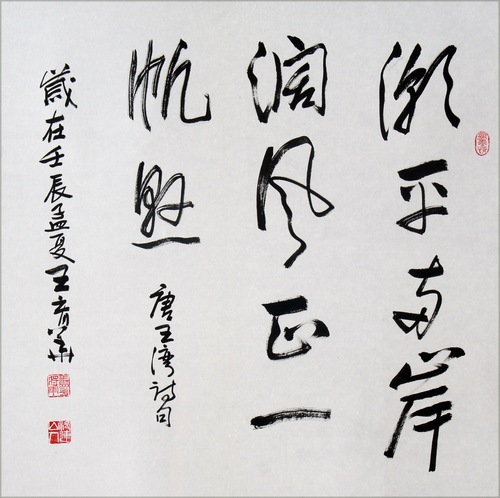 潮平两岸
濶风正一
帆悬
唐王湾诗句
歲在壬辰孟夏王